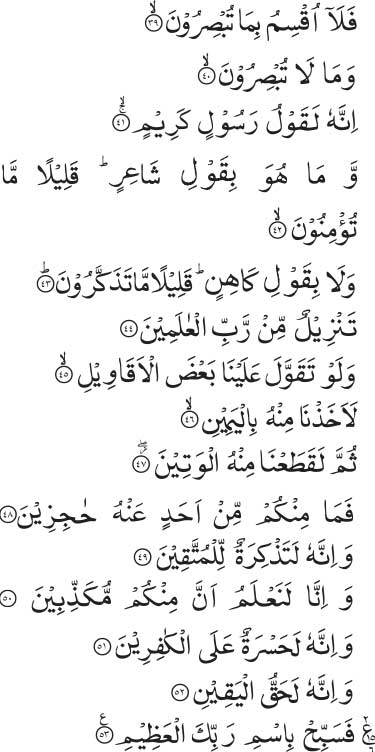 فَلَآ اُقْسِمُ بِمَا تُبْصِرُوْنَۙ ۳۹
وَمَا لَا تُبْصِرُوْنَۙ ۴۰
اِنَّهٗ لَقَوْلُ رَسُوْلٍ كَرِيْمٍۚۙ ۴۱
وَّ مَا هُوَ بِقَوْلِ شَاعِرٍؕ قَلِيْلًا مَّا
تُؤْمِنُوْنَۙ ۴۲
وَلَا بِقَوْلِ كَاهِنٍؕ قَلِيْلًا مَّا تَذَكَّرُوْنَؕ ۴۳
تَنْزِيْلٌ مِّنْ رَّبِّ الْعٰلَمِيْنَ ۴۴
وَلَوْ تَقَوَّلَ عَلَيْنَا بَعْضَ الْاَقَاوِيْلِۙ ۴۵
لَاَخَذْنَا مِنْهُ بِالْيَمِيْنِۙ ۴۶
ثُمَّ لَقَطَعْنَا مِنْهُ الْوَتِيْنَؗۖ ۴۷
فَمَا مِنْكُمْ مِّنْ اَحَدٍ عَنْهُ حٰجِزِيْنَ ۴۸
وَاِنَّهٗ لَتَذْكِرَةٌ لِّلْمُتَّقِيْنَ ۴۹
وَ اِنَّا لَنَعْلَمُ اَنَّ مِنْكُمْ مُّكَذِّبِيْنَ ۵۰
وَاِنَّهٗ لَحَسْرَةٌ عَلَى الْكٰفِرِيْنَ ۵۱
وَاِنَّهٗ لَحَقُّ الْيَقِيْنِ ۵۲
فَسَبِّحْ بِاسْمِ رَبِّكَ الْعَظِيْمِ ۵۳ ع